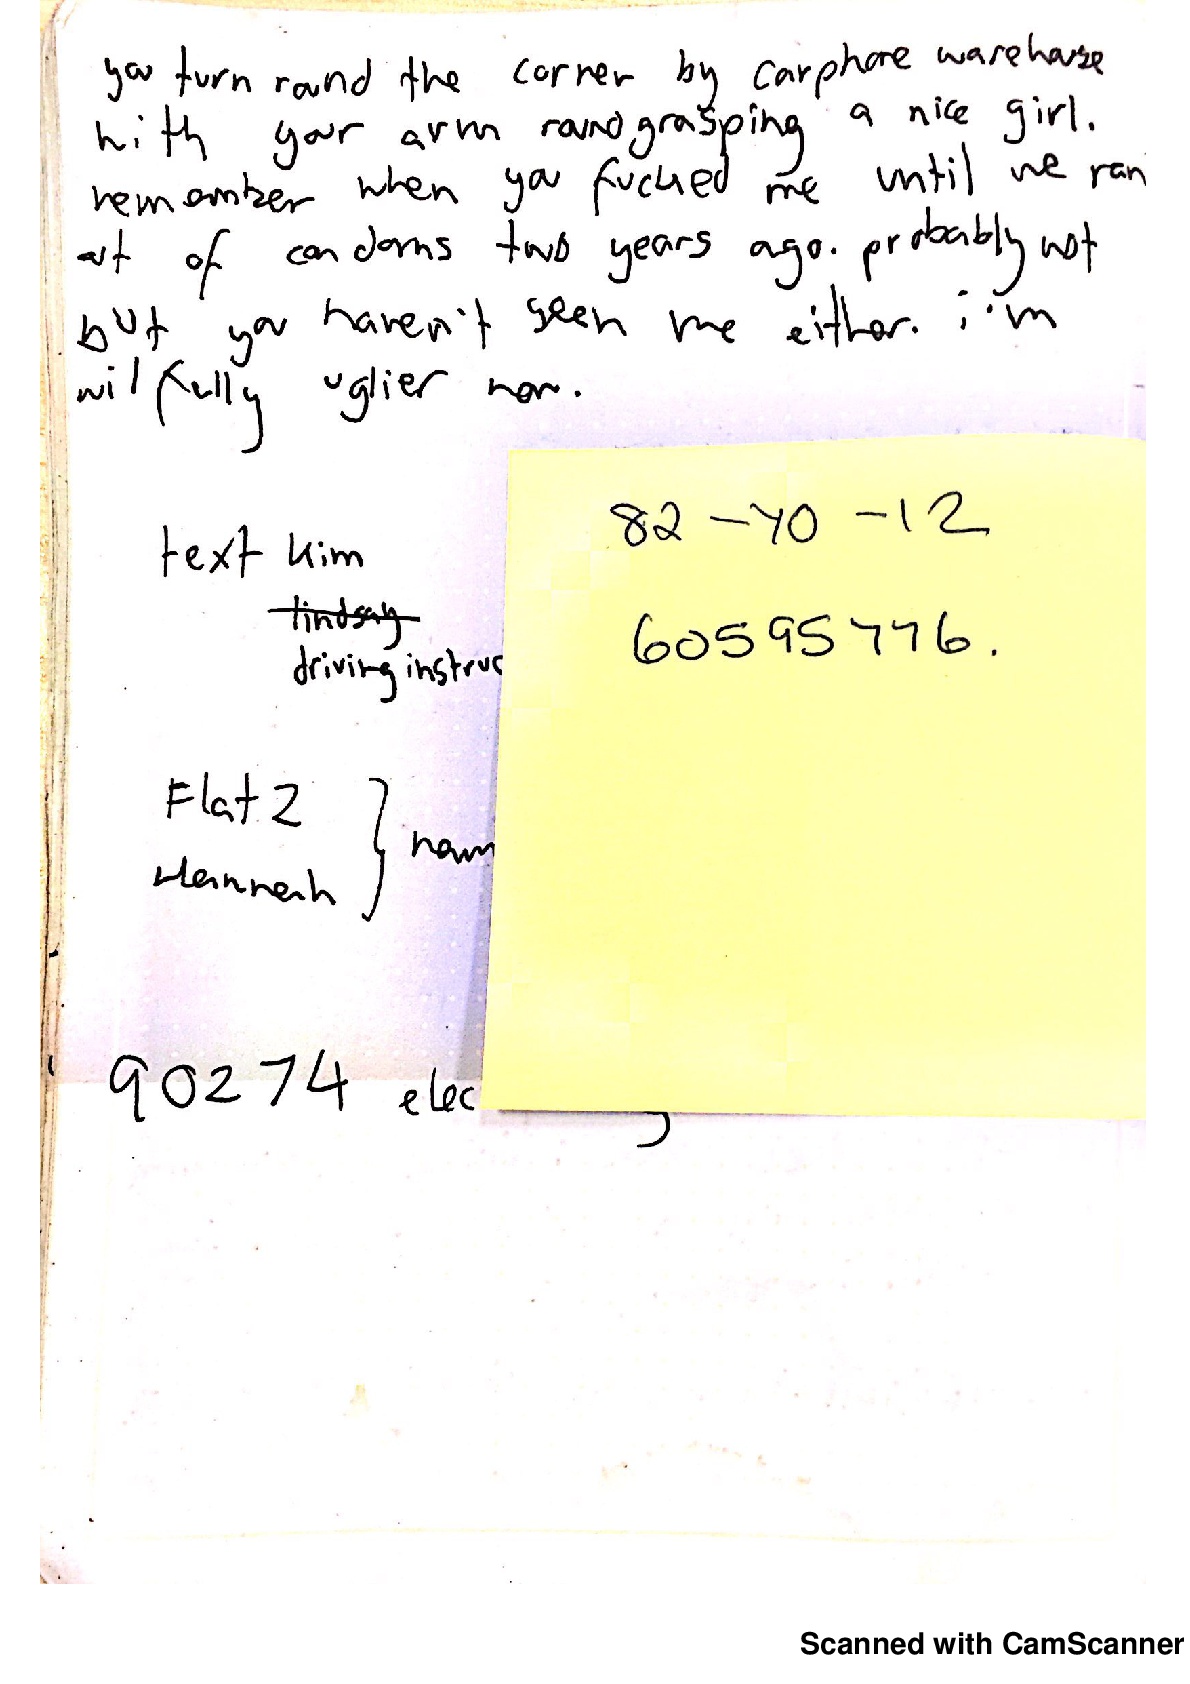 you turn round the corner by carphone warehouse
with your arm round grasping a nice girl.
remember when you fucked me until we ran
out of condoms two years ago. probably not
but you haven't seen me either. i'm
wilfully uglier now.
82-40-12
text Kim
lindsay
driving instruc
60595776.
Flat 2
Hannah
90274 elec
Scanned with CamScanner